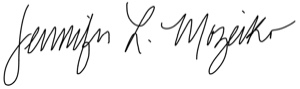 Jennifer L. Mozeiko